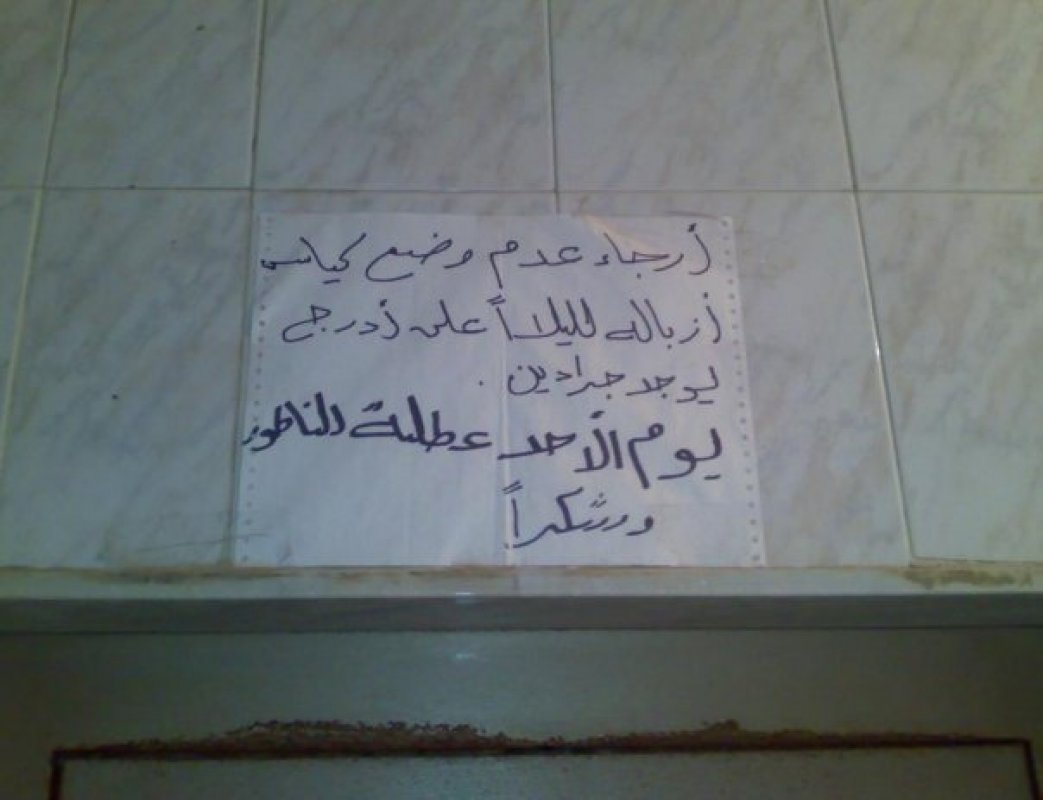 أرجاء عدم وضع كياس
أزباله لليلاً على أدرج
ليوجد جرادين.
ليوم الأحد عطلة الناطور
وشكراً